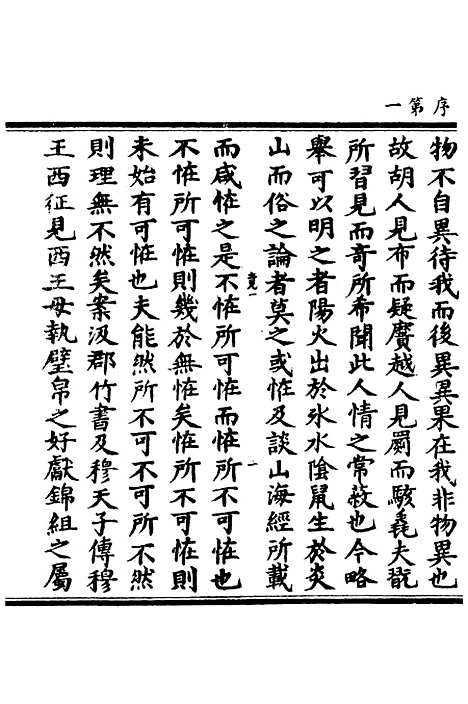 序第一
物不自異待我而後異異果在我非物異也
故胡人見布而疑黂越人見罽而駭毳夫翫
所習見而奇所希聞此人情之常蔽也今略
舉可以明之者陽火出於氷水陰鼠生於炎
山而俗之論者莫之或恠及談山海經所載
而咸恠之是不恠所可恠而恠所不可恠也
不恠所可恠則幾於無恠矣恠所不可恠則
未始有可恠也夫能然所不可不可所不然
則理無不然矣案汲郡竹書及穆天子傳穆
王西征見西王母執璧帛之好獻錦組之屬